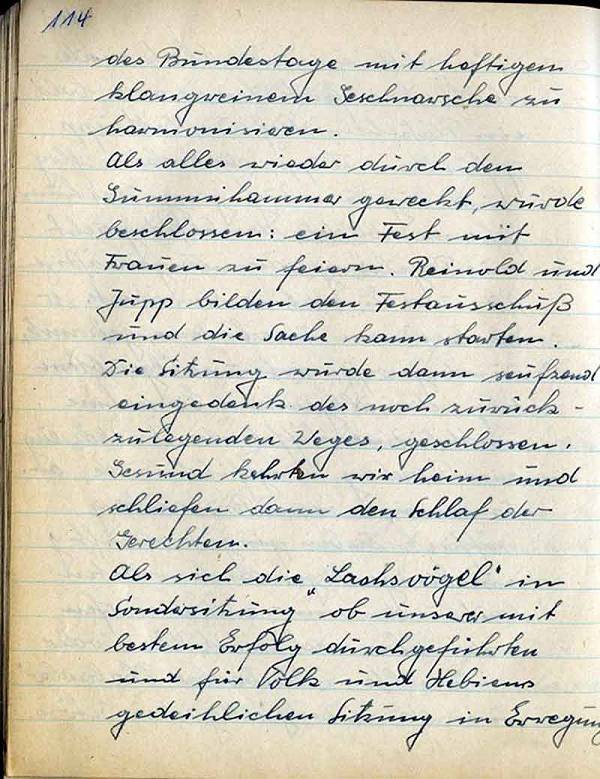 114
des Bundestage mit heftigem
klangreinem Geschnarsche zu
harmonisieren.
Als alles wieder durch den
Gummihammer geweckt, wurde
beschlossen: ein Fest mit
Frauen zu feiern. Reinold und
Jupp bilden den Festausschuß
und die Sache kann starten.
Die Sitzung wurde dann seufzend
eingedenk des noch zurück-
zulegenden Weges, geschlossen.
Gesund kehrten wir heim und
schliefen dann den Schlaf der
Gerechten.
Als sich die "Lachsvögel" in
Sondersitzung ob unserer mit
bestem Erfolg durchgeführten
und für Volk und
gedeihlichen Sitzung in Erregung